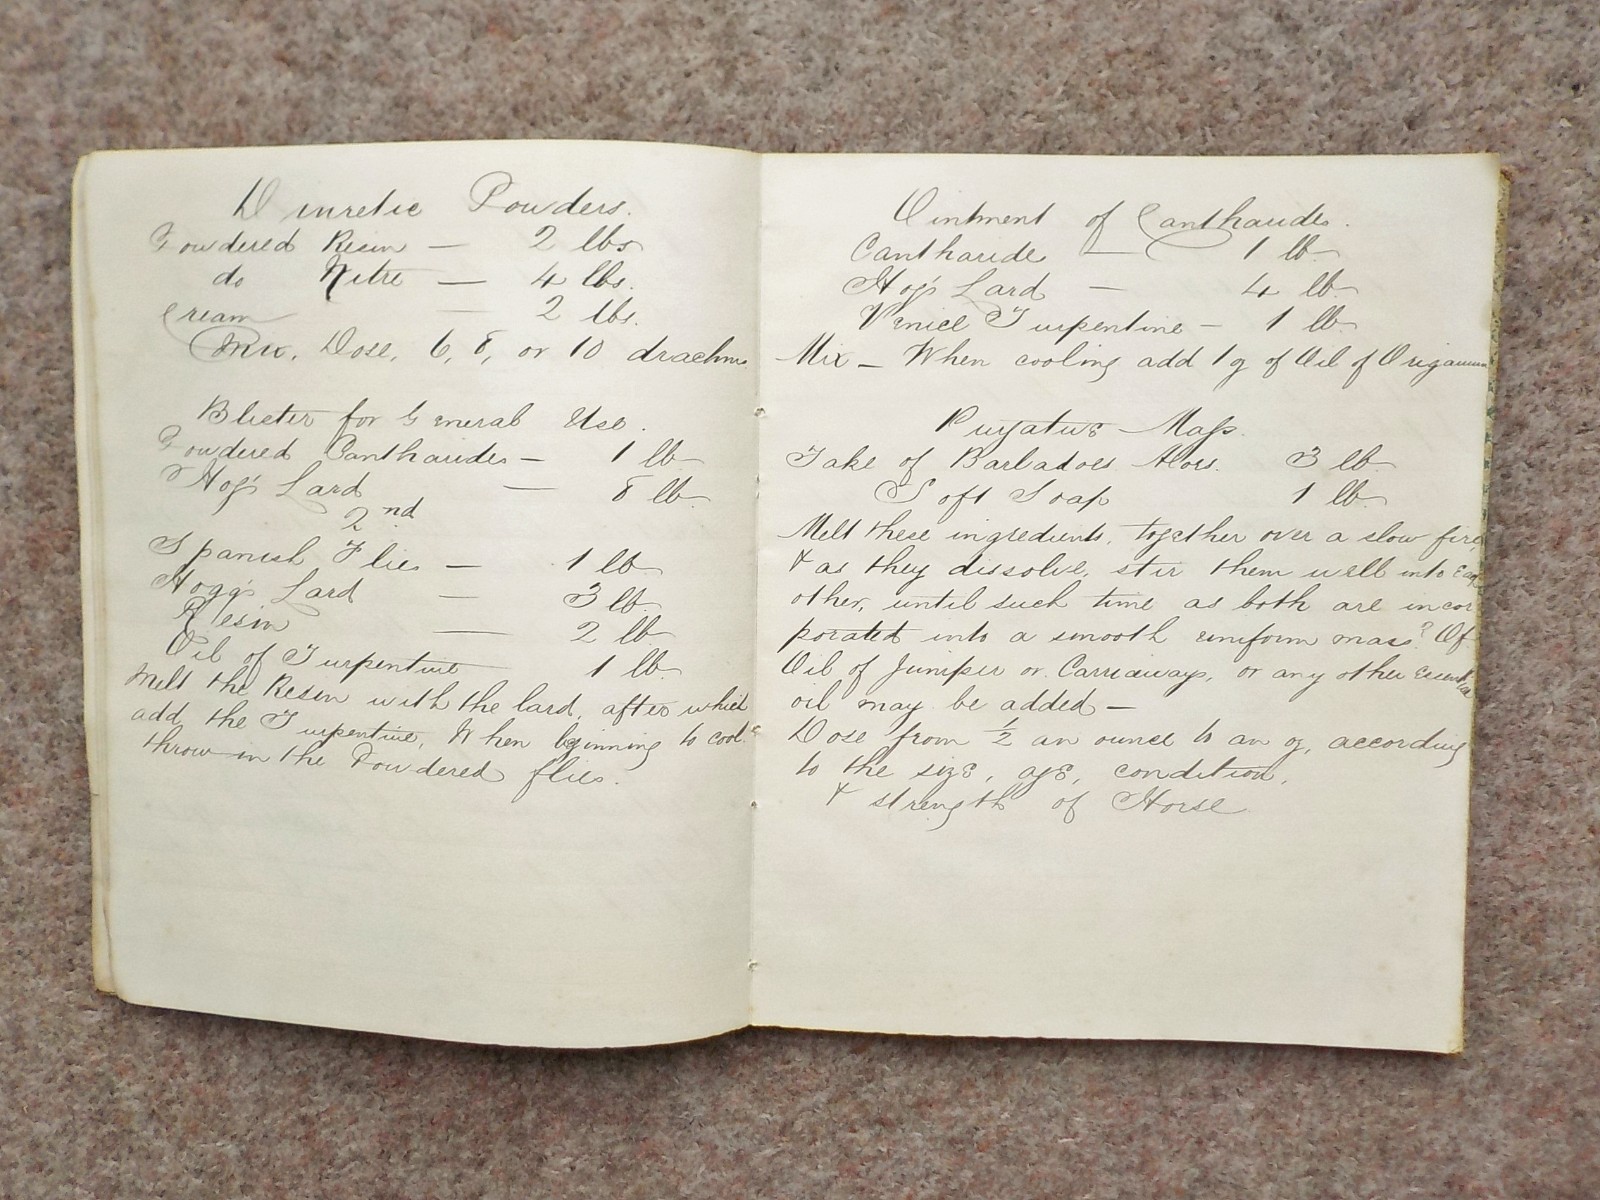 Diuretic Powders.
Powdered Resin — 2 lbs
do Nitre — 4 lbs.
Cream — 2 lbs.
Mix. Dose, 6, 8, or 10 drachms
Blister for General Use.
Powdered Cantharides — 1 lb
Hog's Lard — 8 lb
2nd
Spanish Flies — 1 lb
Hogg's Lard — 3 lb.
Resin — 2 lb
Oil of Turpentine 1 lb.
Melt the Resin with the lard, after which
add the Turpentine. When beginning to cool
throw in the Powdered flies.
Ointment of Cantharides.
Cantharide — 1 lb
Hog's Lard — 4 lb
Venice Turpentine — 1 lb
Mix — When cooling add 1 oz of Oil of Origanum
Purgative Mass.
Take of Barbadoes Aloes. 3 lb.
Soft Soap 1 lb.
Melt these ingredients, together over a slow fire,
& as they dissolve, stir them well into each
other, until such time as both are incor
porated into a smooth uniform mass? Of
Oil of Juniper or Carriaways, or any other Essential
oil may be added —
Dose from ½ an ounce to an oz, according
to the size, age, condition,
& strength of Horse